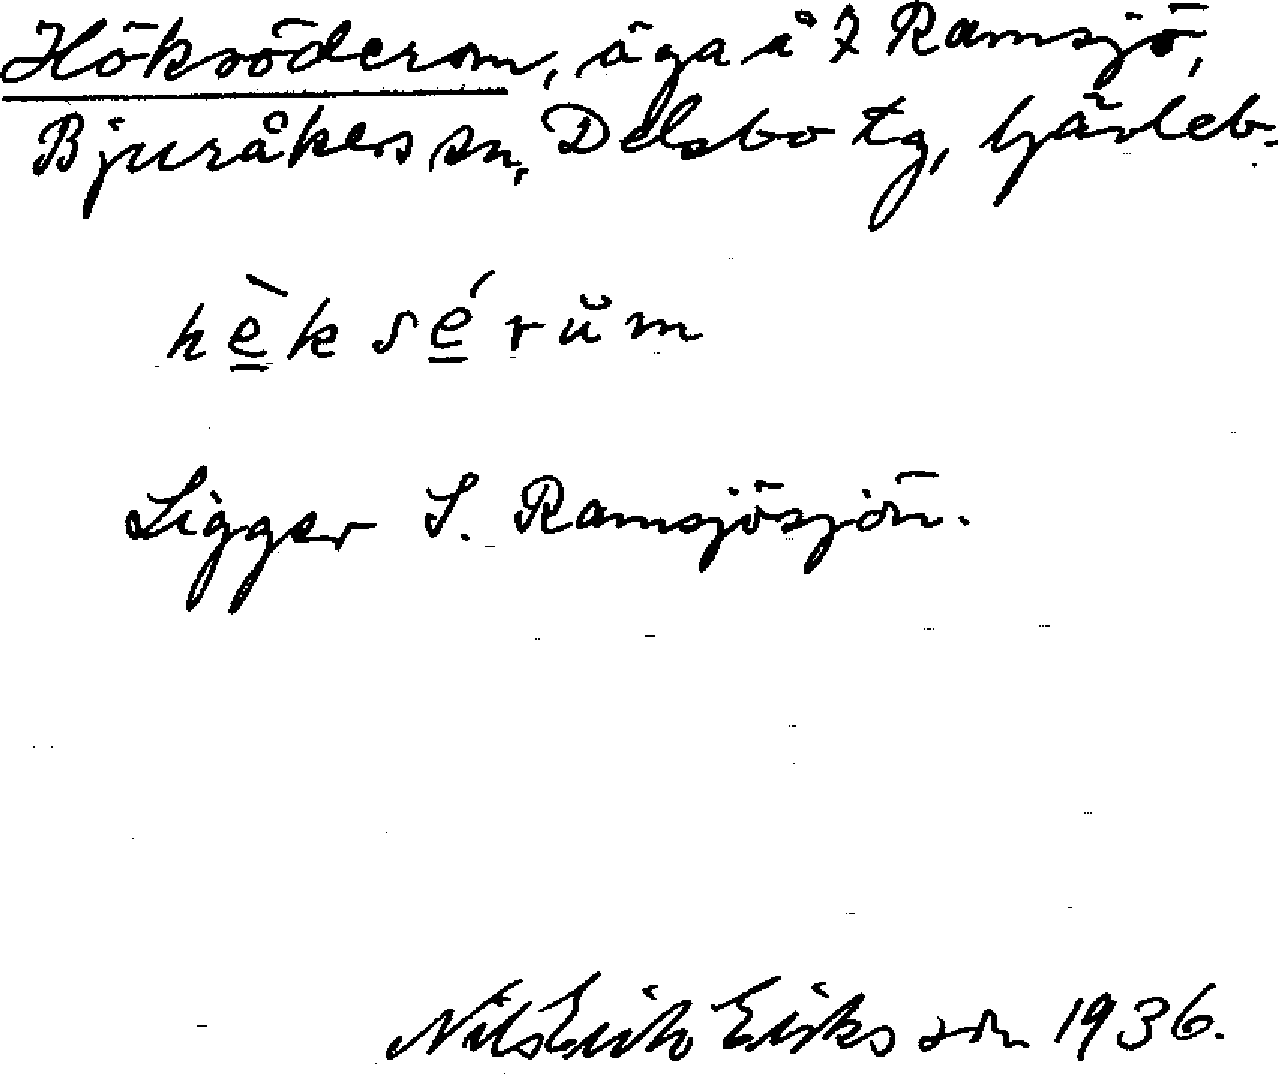 Höksöderom, äga å 7 Ramsjö,
Bjuråkers sn, Delsbo tg, Gävleb.
hè̱ksé̱rŭm
Ligger S. Ramsjösjön.
Nils Erik Eriksson 1936.